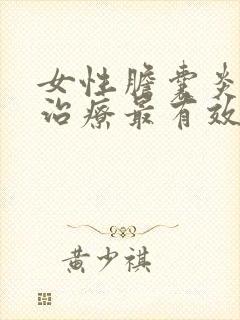 女性膽囊炎
治療最有效
黄少祺